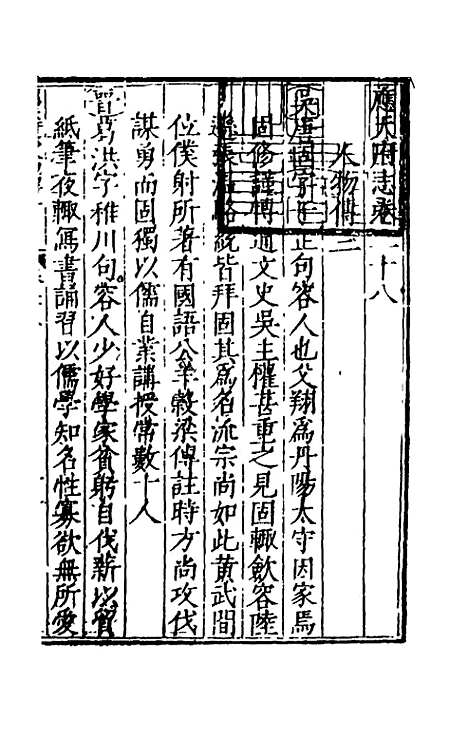 應天府志卷二十八
人物傳三
吳唐固字子正句容人也父翔為丹陽太守因家焉
固修謹博通文史吳主權甚重之見固輙斂容陸
遜張溫駱統皆拜固其為名流宗尚如此黃武間
位僕射所著有國語公羊穀梁傳註時方尚攻伐
謀勇而固獨以儒自業講授常數十人
晉葛洪字稚川句容人少好學家貧躬自伐薪以貿
紙筆夜輙寫書誦習以儒學知名性寡欲無所愛